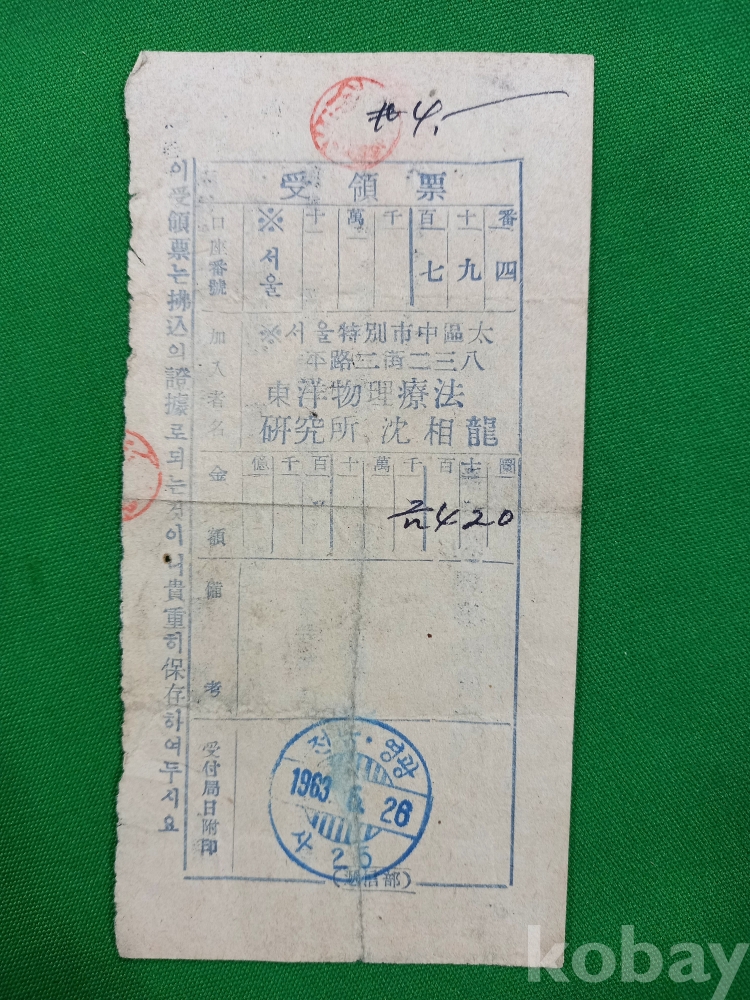 4.
受領票
口座番號
※ 十 萬 千 百 十 番
서울 七 九 四
加入者名
※서울特別市中區太
平路二街二三八
東洋物理療法
硏究所 沈相龍
金額
億 千 百 十 萬 千 百 十 圜
금420
備考
受付局日附印
전남·영광
1963. 6. 26
사 25
이受領票는拂込의證據로되는것이니貴重히保存하여두시요
kobay